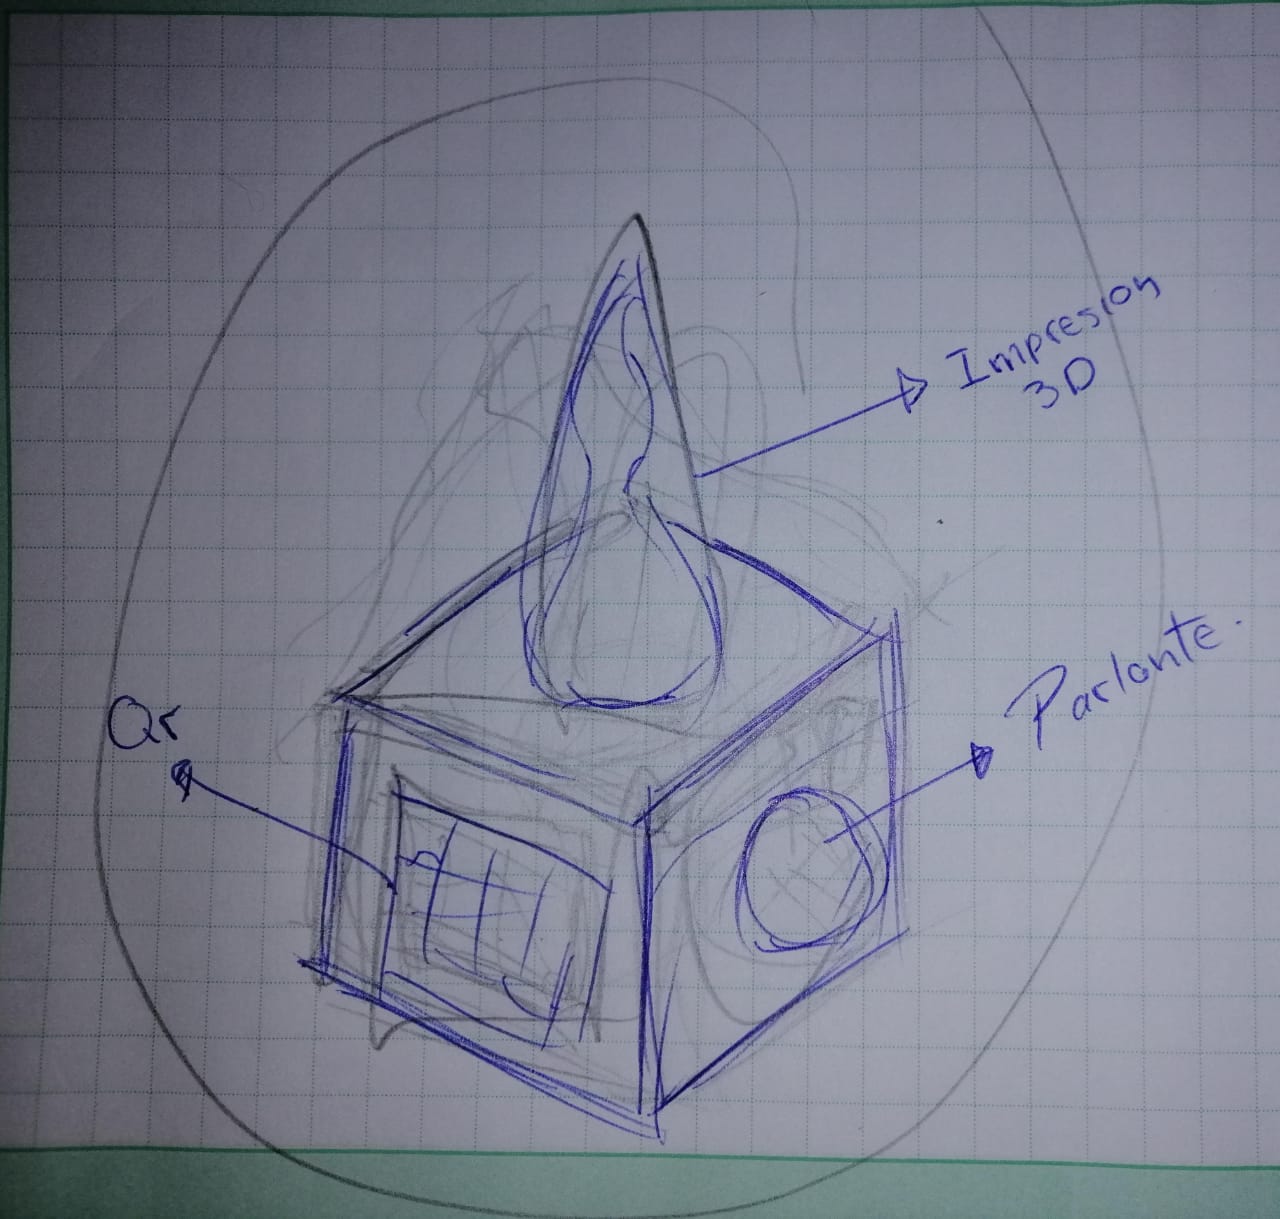 Impresion
3D
Parlante.
Qr